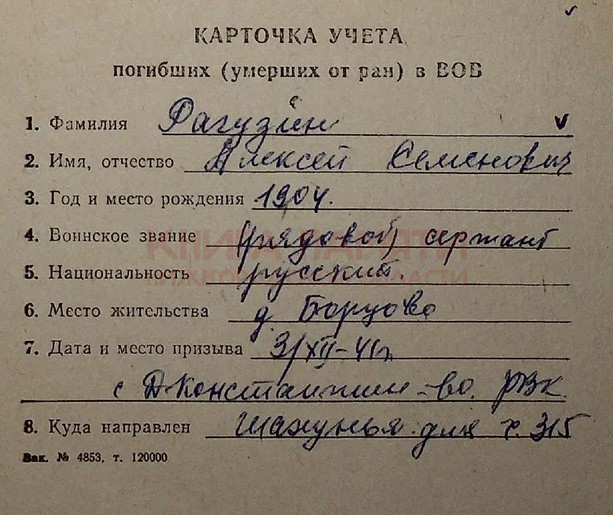 КАРТОЧКА УЧЕТА
погибших (умерших от ран) в ВОВ
1. Фамилия Рагузин
2. Имя, отчество Алексей Семенович
3. Год и место рождения 1904.
4. Воинское звание (рядовой) сержант
КНИГА ПАМЯТИ
5. Национальность русский.
НИЖЕГОРОДСКОЙ ОБЛАСТИ
6. Место жительства д. Борцово
7. Дата и место призыва 3/XII-41г.
с Д-Константин-во. РВК.
8. Куда направлен Шахунья для ч. 315
Зак. № 4853, т. 120000